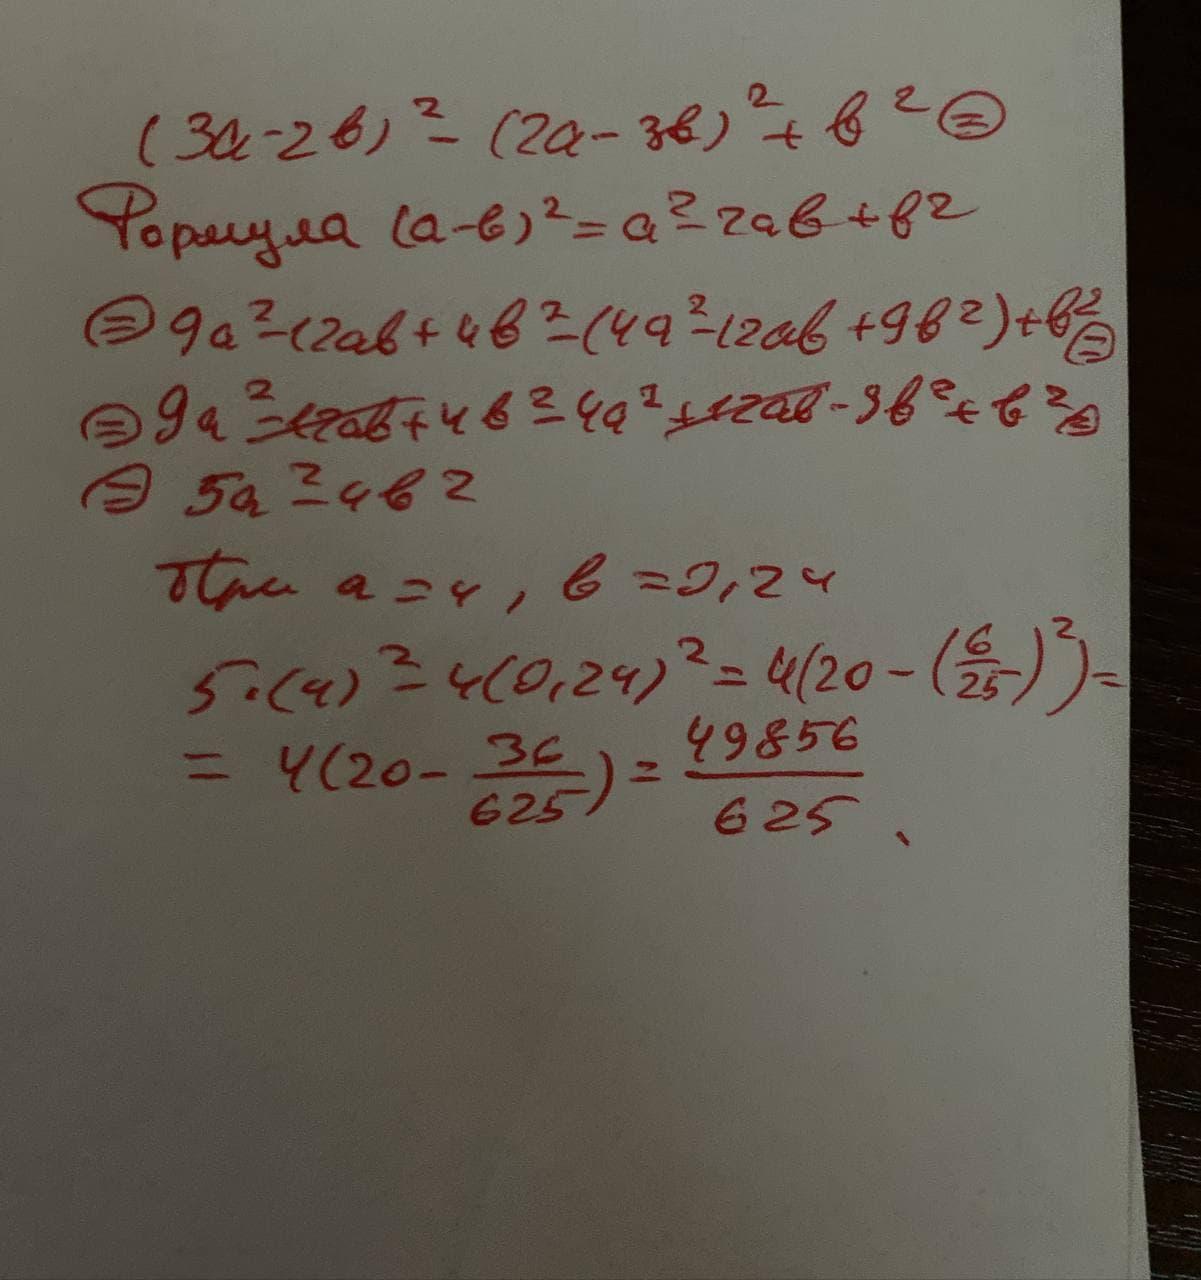 (3a-2b)²-(2a-3b)²+b² ⊜
Формула (a-b)²=a²-2ab+b²
⊜ 9a²-12ab+4b²-(4a²-12ab+9b²)+b² ⊜
⊜ 9a²-12ab+4b²-4a²+12ab-9b²+b² ⊜
⊜ 5a²-4b²
При a=4, b=0,24
5·(4)²-4(0,24)²=4(20-(6/25)²)=
=4(20-36/625)=49856/625.